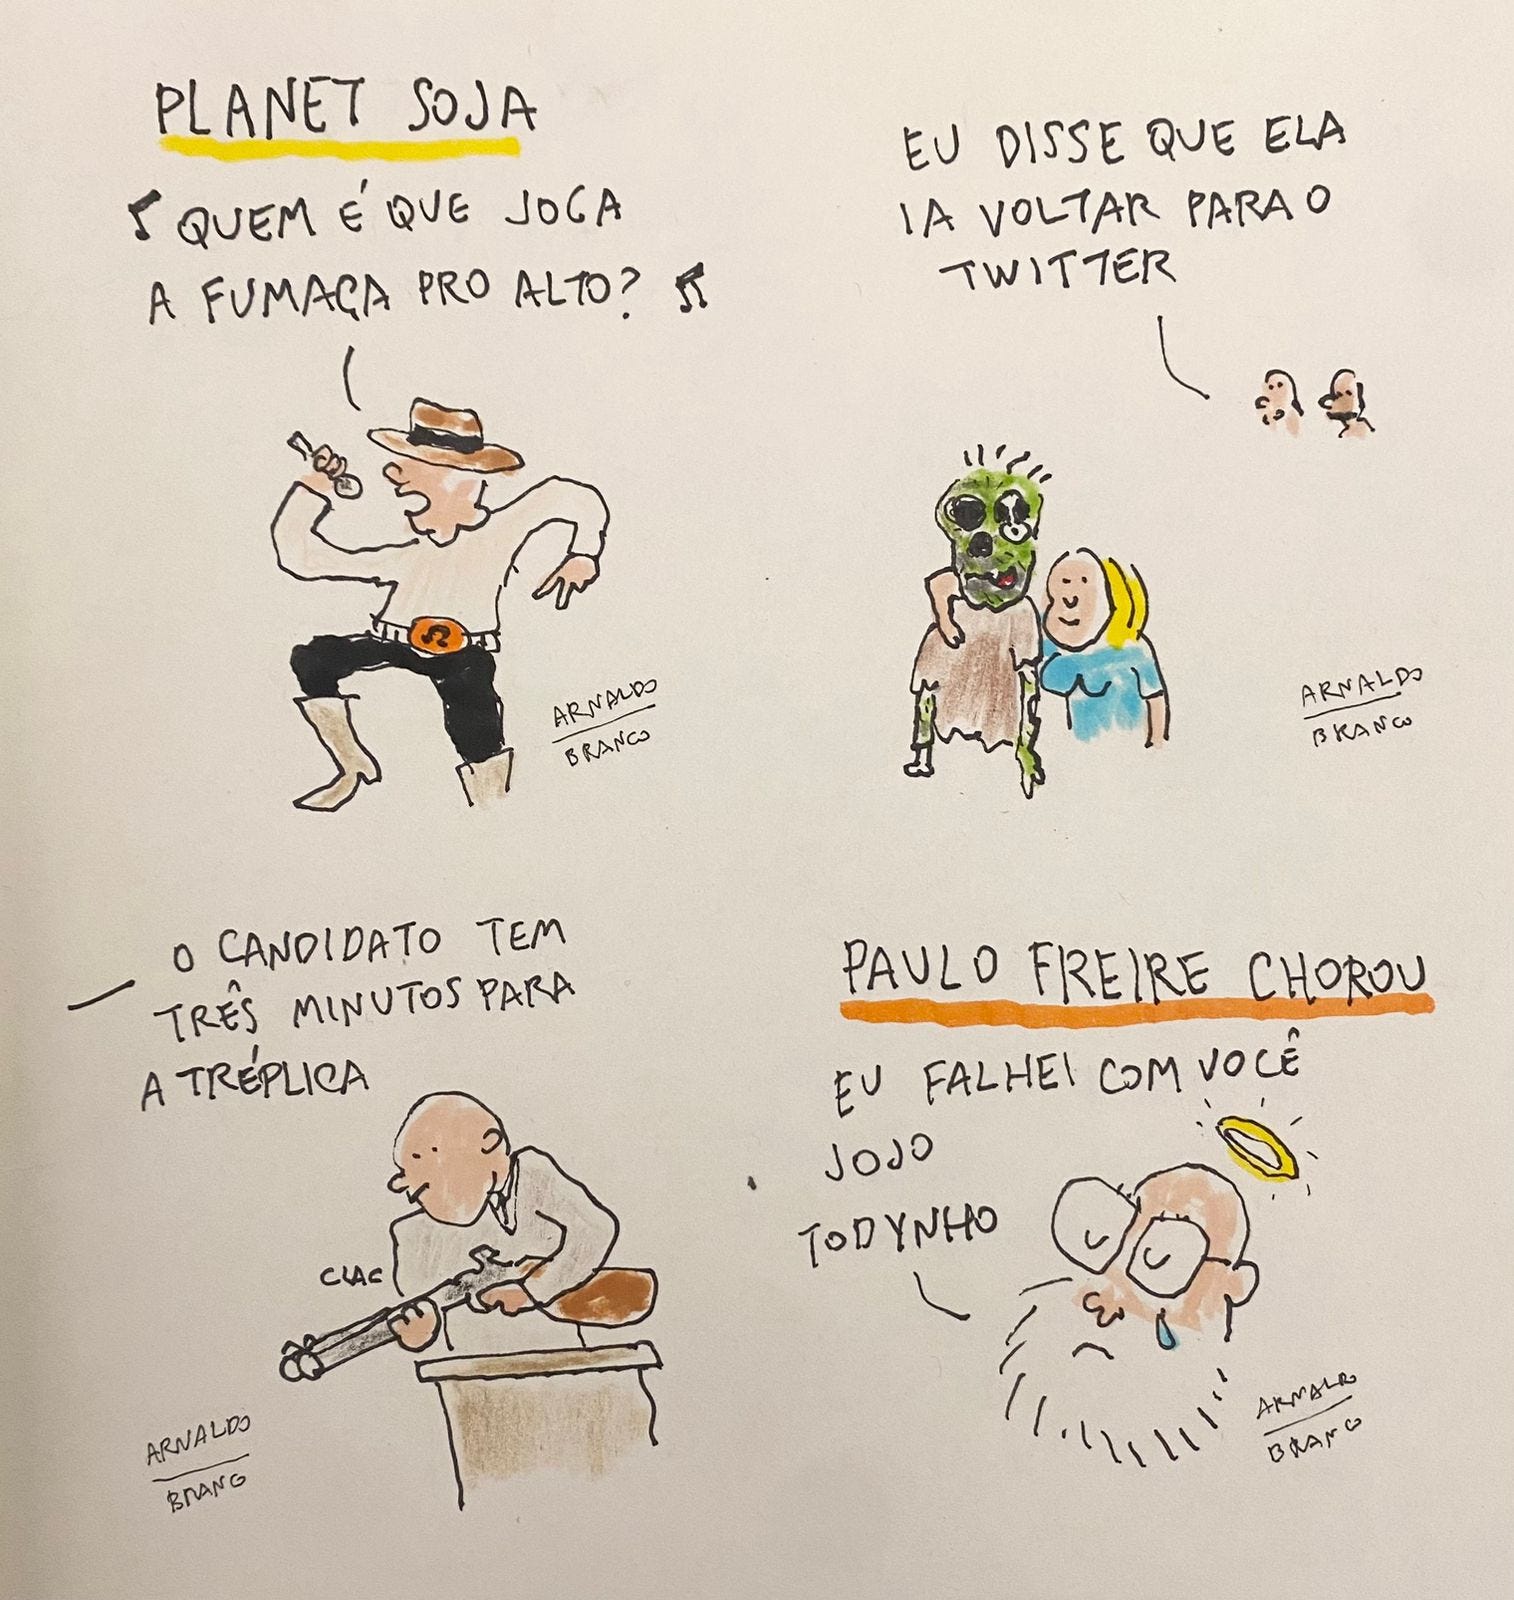 PLANET SOJA
QUEM É QUE JOGA
A FUMAÇA PRO ALTO?
ARNALDO
BRANCO
EU DISSE QUE ELA
IA VOLTAR PARA O
TWITTER
ARNALDO
BRANCO
O CANDIDATO TEM
TRÊS MINUTOS PARA
A TRÉPLICA
CLAC
ARNALDO
BRANCO
PAULO FREIRE CHOROU
EU FALHEI COM VOCÊ
JOJO
TODYNHO
ARNALDO
BRANCO